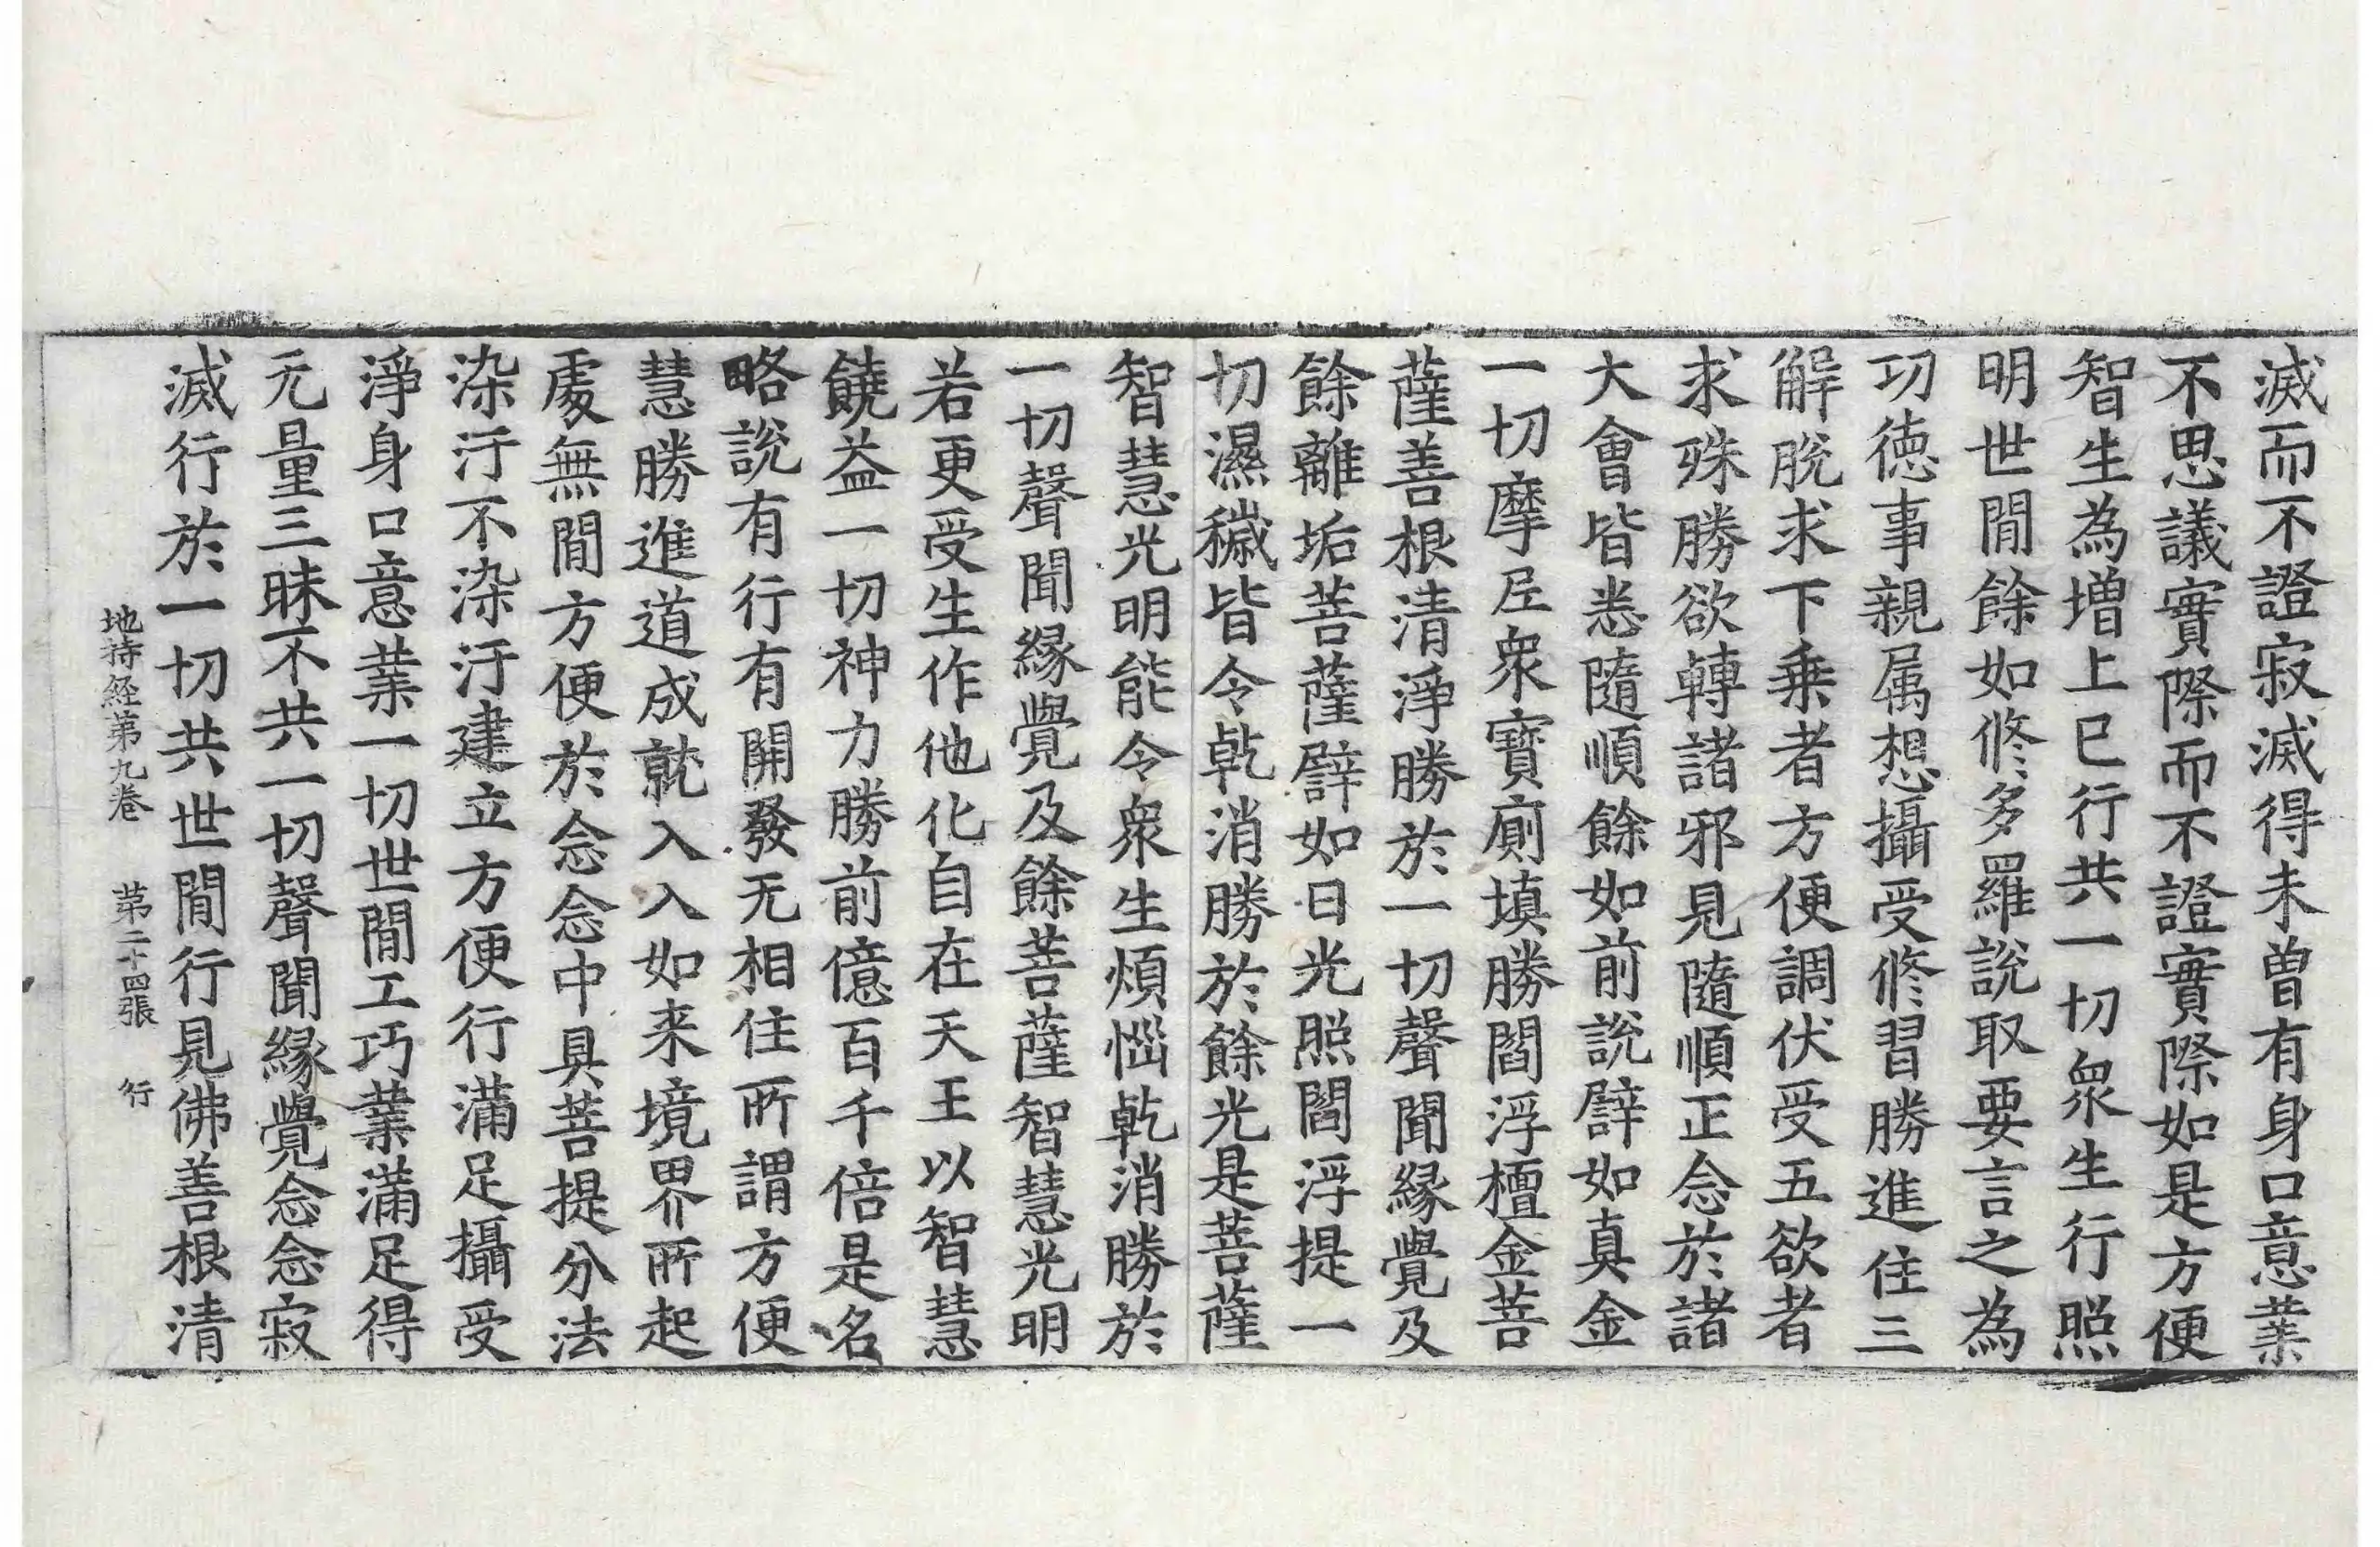 滅而不證寂滅得未曽有身口意業
不思議實際而不證實際如是方便
智生為增上巳行共一切衆生行照
明世閒餘如修多羅說取要言之為
功徳事親属想攝受修習勝進住三
解脫求下乗者方便調伏受五欲者
求殊勝欲轉諸邪見隨順正念於諸
大會皆悉隨順餘如前說譬如真金
一切摩尼衆寶廁填勝閻浮檀金菩
薩善根清淨勝於一切聲聞縁覺及
餘離垢菩薩譬如日光照閻浮提一
切濕穢皆令乾消勝於餘光是菩薩
智慧光明能令衆生煩惱乾消勝於
一切聲聞縁覺及餘菩薩智慧光明
若更受生作他化自在天王以智慧
饒益一切神力勝前億百千倍是名
略說有行有開發无相住所謂方便
慧勝進道成就入入如来境界所起
處無閒方便於念念中具菩提分法
染汙不染汙建立方便行滿足攝受
淨身口意業一切世閒工巧業滿足得
无量三昧不共一切聲聞縁覺念念寂
滅行於一切共世閒行見佛善根清
地持経第九卷 第二十四張 行